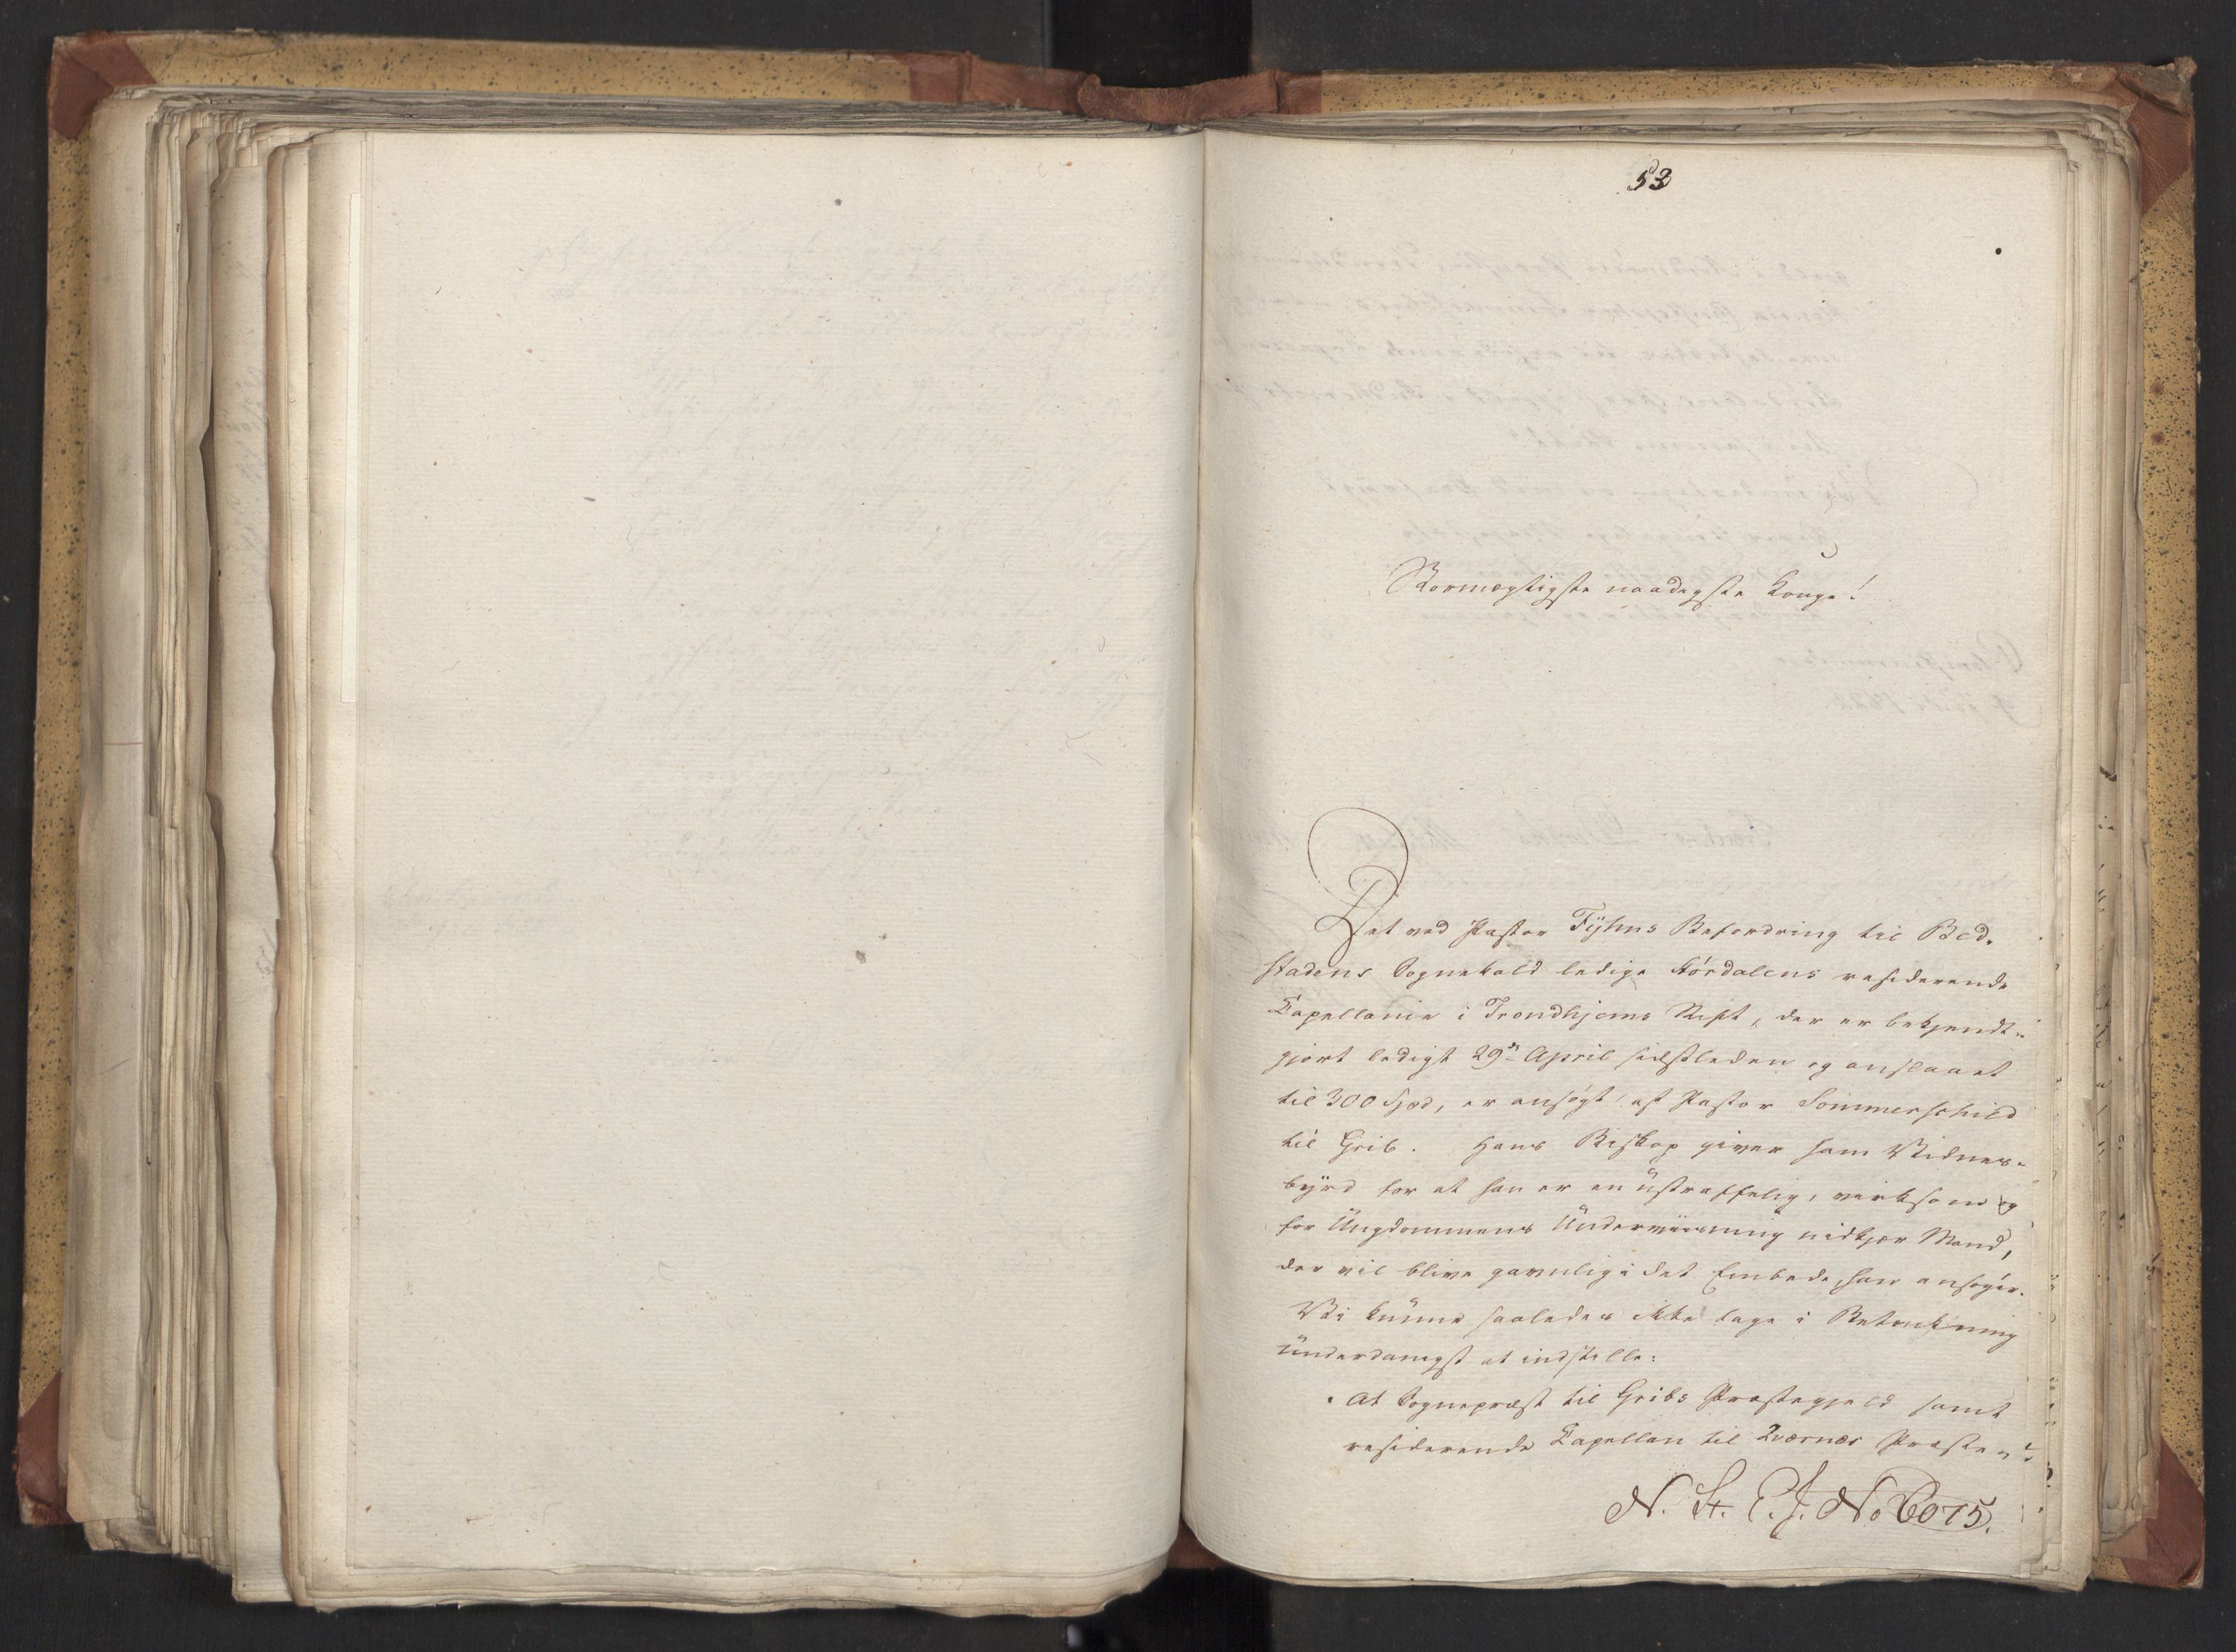 53
Stormægtigste naadigste Konge!
Det ved Pastor Tyhns Befordring til Bed-
stadens Sognekald ledige Størdalens residerende
Capellanie i Trondhjems Stift, der er bekjendt-
gjort ledigt 29de April sidstleden og anslaaet
til 300 Spd, er ansøgt af Pastor Sommerschild
til Grib. Hans Biskop giver ham Vidnes-
byrd for at han er en ustraffelig, virksom og
for Ungdommens Underviisning nidkjær Mand,
der vil blive gavnlig i det Embede, han ansøger.
Vi kunne saaledes ikke tage i Betænkning
underdanigst at indstille:
At Sognepræst til Gribs Præstegjeld samt
residerende Capellan til Qværnes Præste-
N. St. E. J. No 6075.